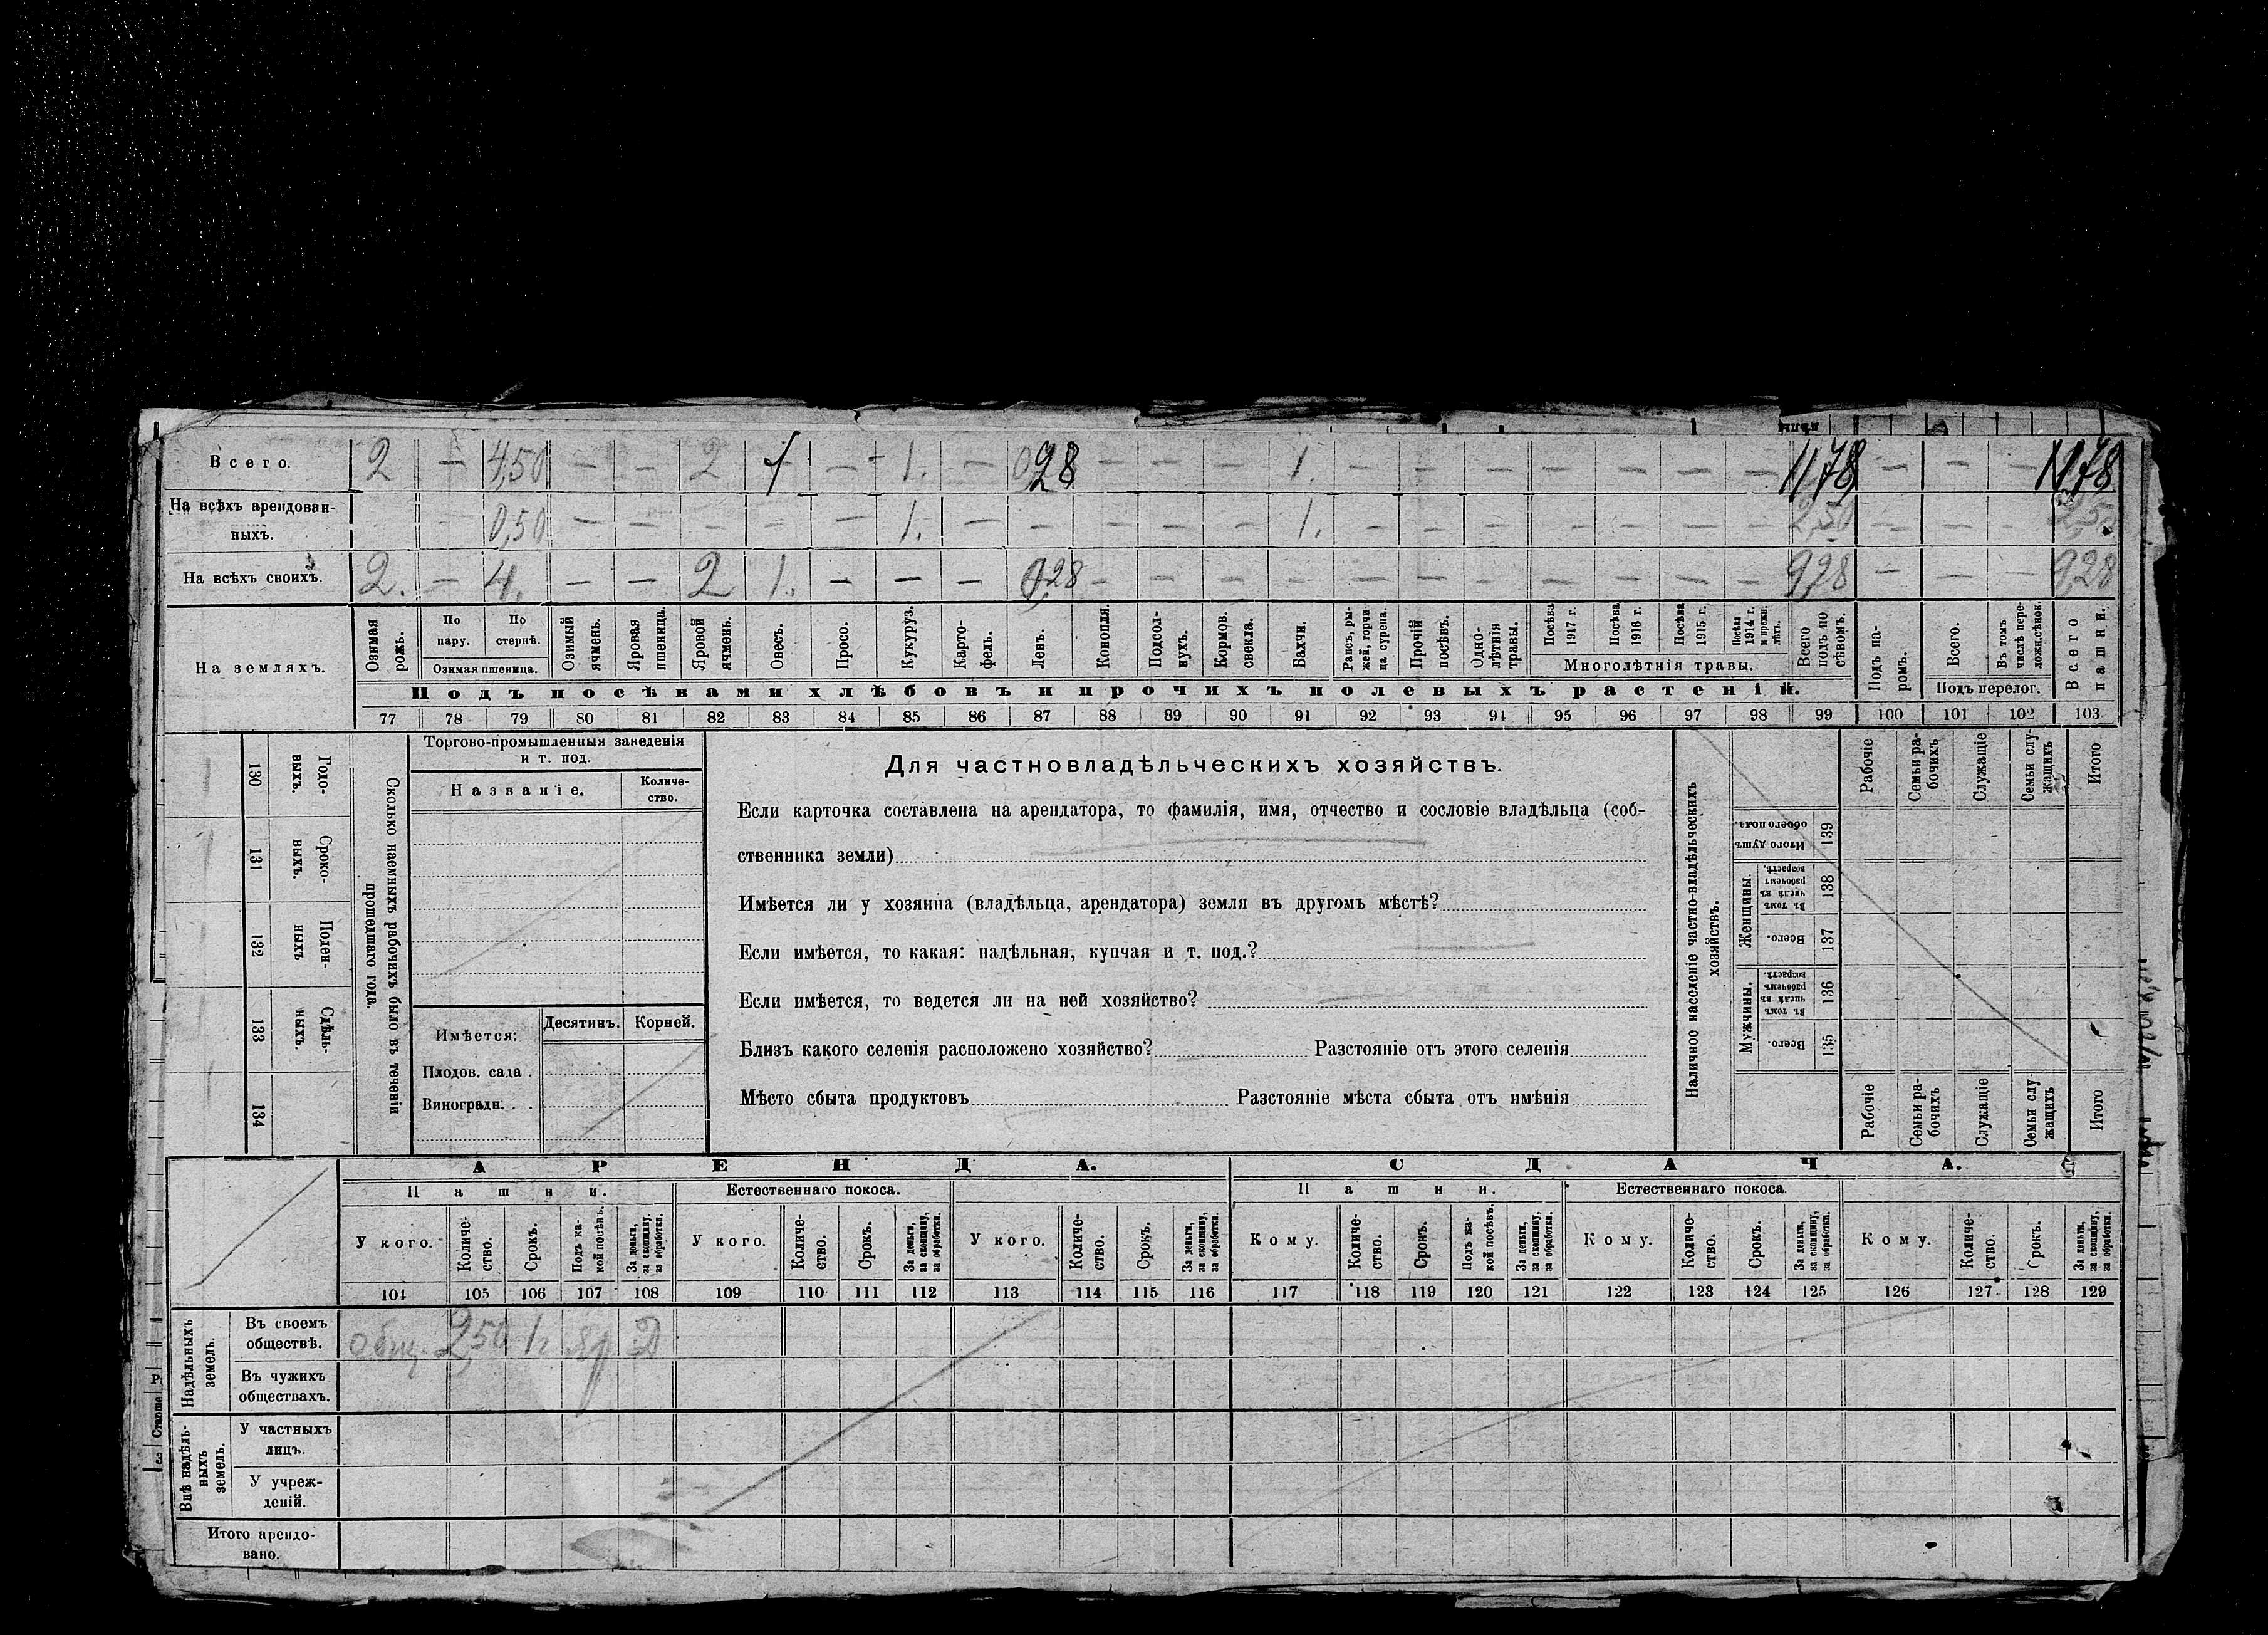 Всего. 2 — 4,50 — — 2 1 — 1. — 0,28 — — — 1. — — — — — — — 11,78 — — — 11,78
На всѣхъ арендован-
ныхъ. 0,50 — — — — — 1. — — — — — 1. — — — — — — — 2,50 — — — 2,50
На всѣхъ своихъ. 2. — 4. — — 2 1. — — — 0,28 — — — — — — — — — — — 9,28 — — — 9,28
На земляхъ.
Озимая рожь.
По пару.
По стернѣ.
Озимая пшеница.
Озимый ячмень.
Яровая пшеница.
Яровой ячмень.
Овесъ.
Просо.
Кукуруз.
Карто-
фель.
Ленъ.
Конопля.
Подсол-
нухъ.
Кормов.
свекла.
Бахчи.
Рапсъ, ры-
жей, горчи
ца сурепа.
Прочій
посѣвъ.
Одно-
лѣтнія
травы.
Посѣва
1917 г.
Посѣва
1916 г.
Посѣва
1915 г.
Посѣва
1914 г.
и прежн.
лѣтъ.
Многолѣтнія травы.
Всего
подъ по
сѣвомъ.
Подъ па-
ромъ.
Всего.
Въ томъ
числѣ пере-
ложн.сѣнок.
Подъ перелог.
Всего
пашни.
Подъ посѣвами хлѣбовъ и прочихъ полевыхъ растеній.
77 78 79 80 81 82 83 84 85 86 87 88 89 90 91 92 93 94 95 96 97 98 99 100 101 102 103
Годо-
выхъ.
130
Сроко-
ныхъ.
131
Поден-
ныхъ
132
Сдѣль-
ныхъ.
133
134
Сколько наемныхъ рабочихъ было въ теченіи
прошедшаго года.
Торгово-промышленныя заведенія
и т. под.
Названіе.
Количе-
ство.
Имѣется:
Десятинъ.
Корней.
Плодов. сада .
Виноградн. . .
Для частновладѣльческихъ хозяйствъ.
Если карточка составлена на арендатора, то фамилія, имя, отчество и сословіе владѣльца (соб-
ственника земли)
Имѣется ли у хозяина (владѣльца, арендатора) земля въ другомъ мѣстѣ?
Если имѣется, то какая: надѣльная, купчая и т. под.?
Если имѣется, то ведется ли на ней хозяйство?
Близъ какого селенія расположено хозяйство? Разстояніе отъ этого селенія
Мѣсто сбыта продуктовъ Разстояніе мѣста сбыта отъ имѣнія
Наличное населеніе частно-владѣльческихъ
хозяйствъ.
Рабочіе
Семьи ра-
бочихъ
Служащіе
Семьи слу-
жащихъ
Итого
Итого душъ
обоего пола.
139
Женщины.
Въ томъ
числѣ въ
рабочемъ
возрастѣ.
138
Всего.
137
Мужчины.
Въ томъ
числѣ въ
рабочемъ
возрастѣ.
136
Всего.
135
Рабочіе
Семьи ра-
бочихъ
Служащіе
Семьи слу
жащихъ
Итого
АРЕНДА.
СДАЧА.
Пашни.
Естественнаго покоса.
Пашни.
Естественнаго покоса.
У кого.
Количе-
ство.
Срокъ.
Подъ ка-
кой посѣвъ.
За деньги,
за скопщину,
за обработки.
У кого.
Количе-
ство.
Срокъ.
За деньги,
за скопщину,
за обработки.
У кого.
Количе-
ство.
Срокъ.
За деньги,
за скопщину,
за обработки.
Кому.
Количе-
ство.
Срокъ.
Подъ ка-
кой посѣвъ.
За деньги,
за скопщину,
за обработки.
Кому.
Количе-
ство.
Срокъ.
За деньги,
за скопщину,
за обработки.
Кому.
Количе-
ство.
Срокъ.
За деньги,
за скопщину,
за обработки.
104 105 106 107 108 109 110 111 112 113 114 115 116 117 118 119 120 121 122 123 124 125 126 127 128 129
Надѣльныхъ
земель.
Въ своемъ
обществѣ.
общ. 2,50 1г яр Д
Въ чужихъ
обществахъ.
Внѣ надѣль-
ныхъ
земель.
У частныхъ
лицъ.
У учреж-
деній.
Итого арендо-
вано.
Старше